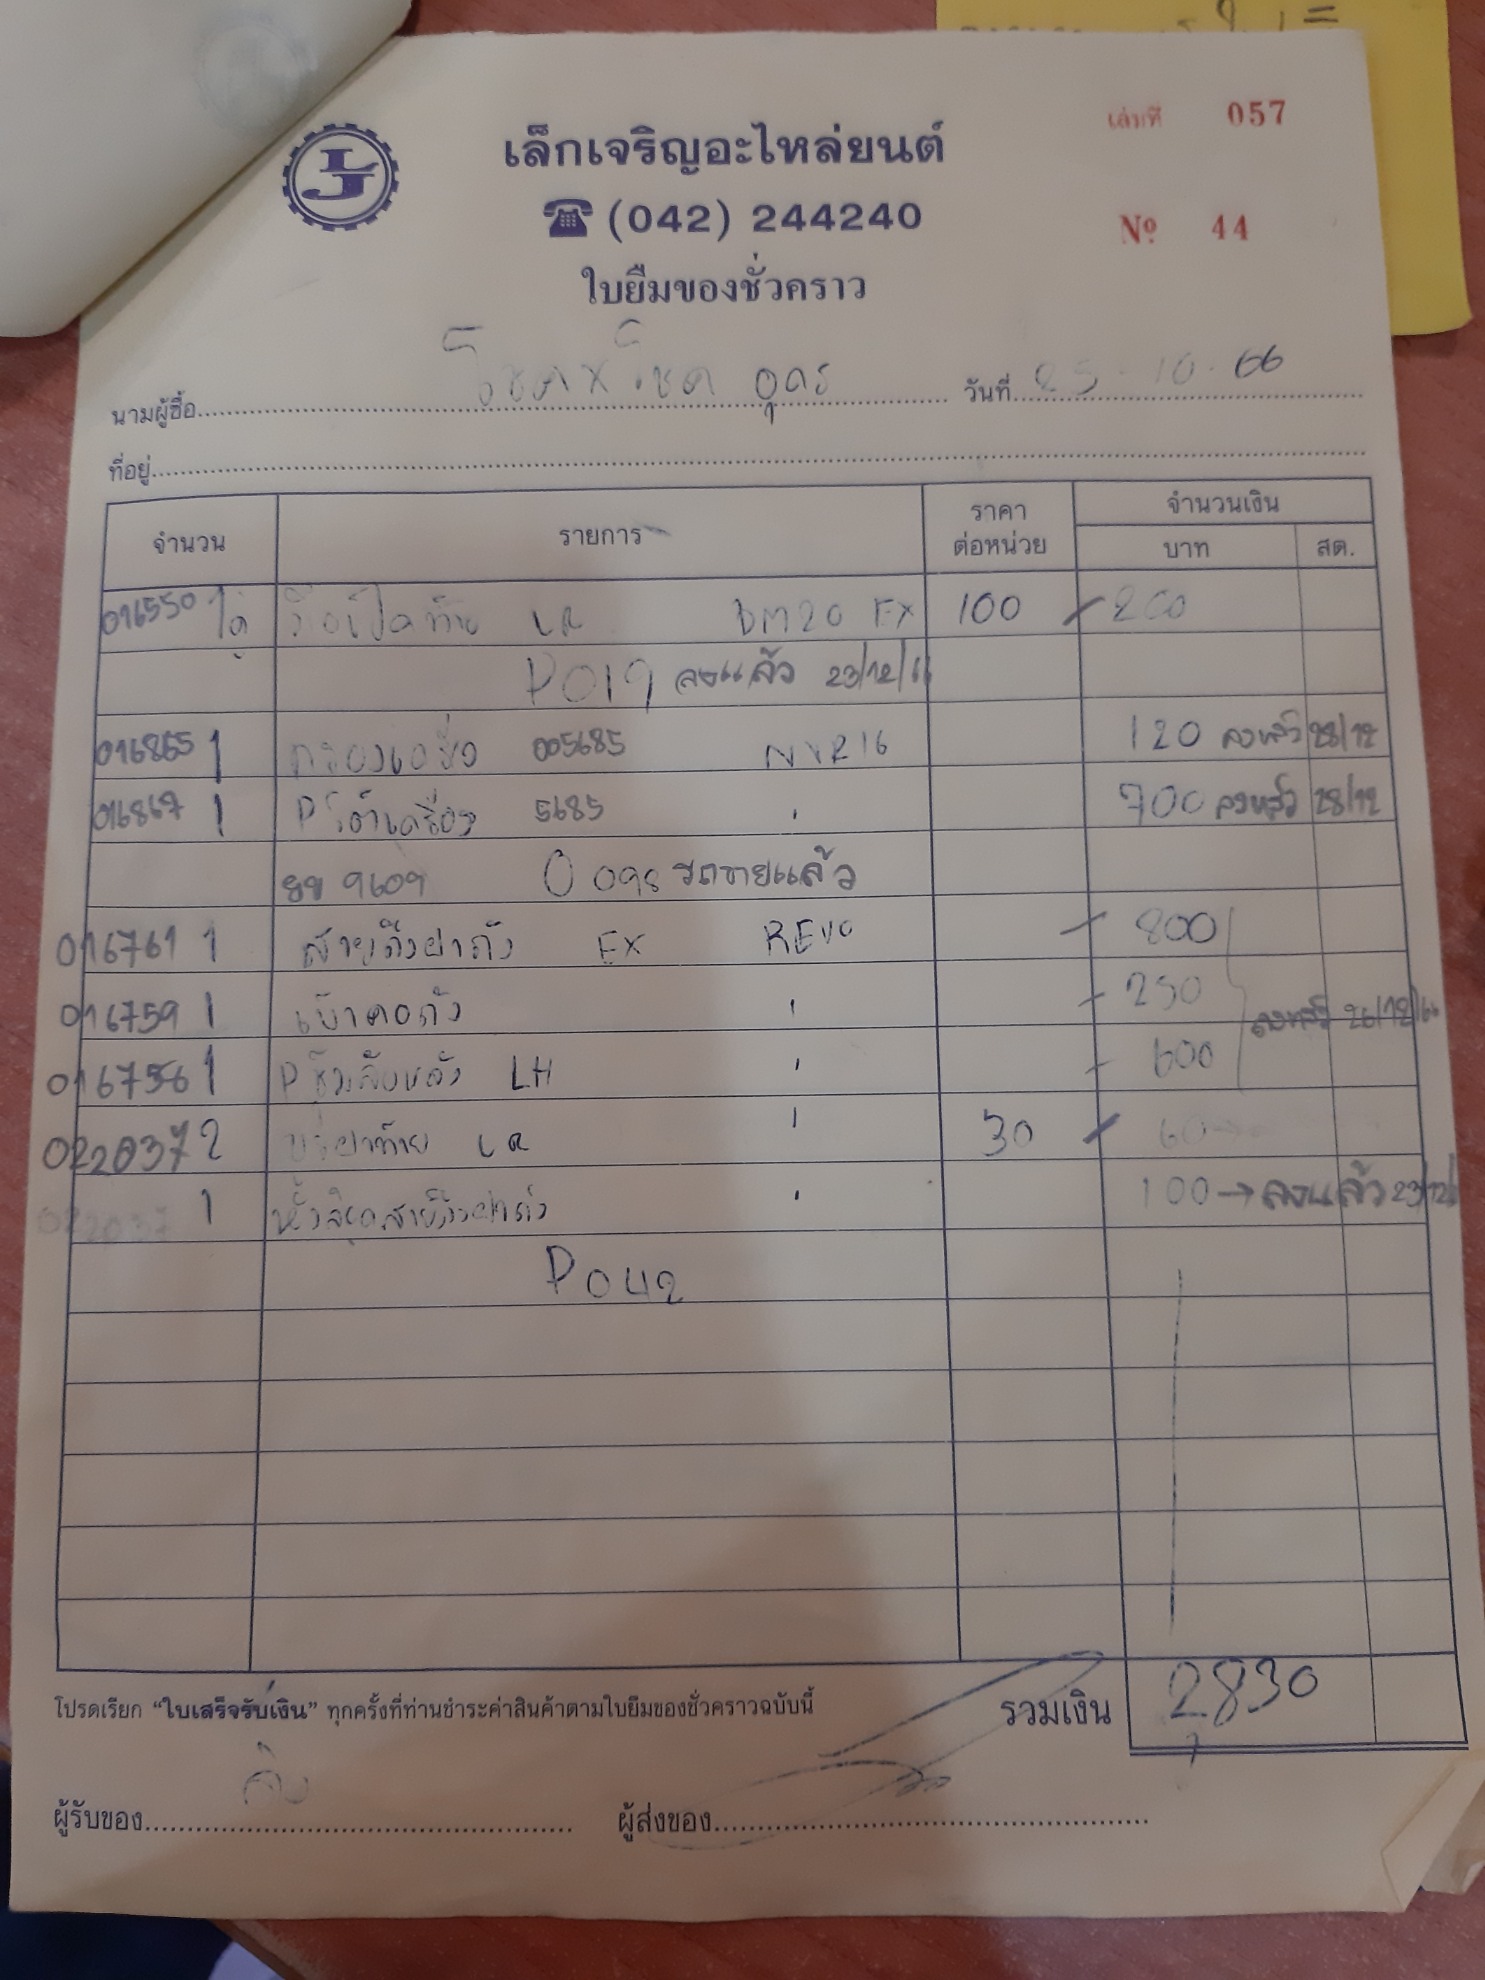 เล่มที่ 057
LJ
เล็กเจริญอะไหล่ยนต์
(042) 244240
Nº 44
ใบยืมของชั่วคราว
นามผู้ซื้อ โชค x โชค อุดร วันที่ 25-10-66
ที่อยู่
จำนวน รายการ ราคาต่อหน่วย จำนวนเงิน
บาท สต.
016550 LR DM20 EX 100 200
P019 ลงแล้ว 23/12/66
016865 1 กรองเครื่อง 005685 NVR16 120 ลงแล้ว 28/12
016867 1 5685 " 700 ลงแล้ว 28/12
ยข 9609 O 098 รถขายแล้ว
016761 1 สายดึงฝาถัง EX REVO 800
016759 1 เบ้าคอถัง " 250
016756 1 LH " 600 ลงแล้ว 26/12/66
022037 2 LR " 30 60
022037 1 " 100 → ลงแล้ว 23/12
P042
โปรดเรียก "ใบเสร็จรับเงิน" ทุกครั้งที่ท่านชำระค่าสินค้าตามใบยืมของชั่วคราวฉบับนี้ รวมเงิน 2830
ผู้รับของ ผู้ส่งของ